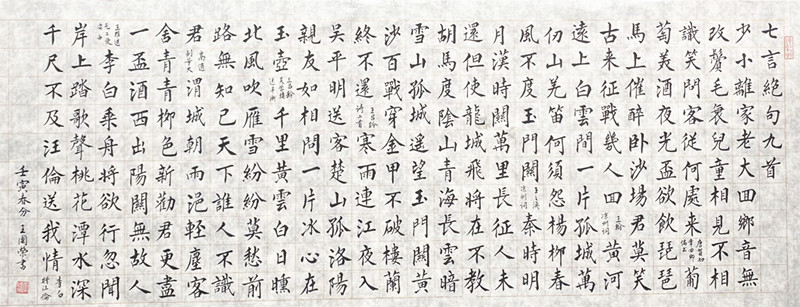 七言絕句九首
少小離家老大回鄉音無
改鬢毛衰兒童相見不相
識笑問客從何處來 唐賀知章回鄉偶書 葡
萄美酒夜光盃欲飲琵琶
馬上催醉臥沙場君莫笑
古來征戰幾人回 王翰涼州詞 黃河
遠上白雲間一片孤城萬
仞山羌笛何須怨楊柳春
風不度玉門關 王之渙涼州詞 秦時明
月漢時關萬里長征人未
還但使龍城飛將在不教
胡馬度陰山青海長雲暗
雪山孤城遙望玉門關黃
沙百戰穿金甲不破樓蘭
終不還 王昌齡詩二首 寒雨連江夜入
吳平明送客楚山孤洛陽
親友如相問一片冰心在
玉壺 王昌齡芙蓉樓送辛漸 千里黃雲白日曛
北風吹雁雪紛紛莫愁前
路無知己天下誰人不識
君 高適別董大 渭城朝雨浥輕塵客
舍青青柳色新勸君更盡
一盃酒西出陽關無故人
王維送元二使安西 李白乘舟將欲行忽聞
岸上踏歌聲桃花潭水深
千尺不及汪倫送我情 李白贈汪倫
壬寅春分 王國榮書